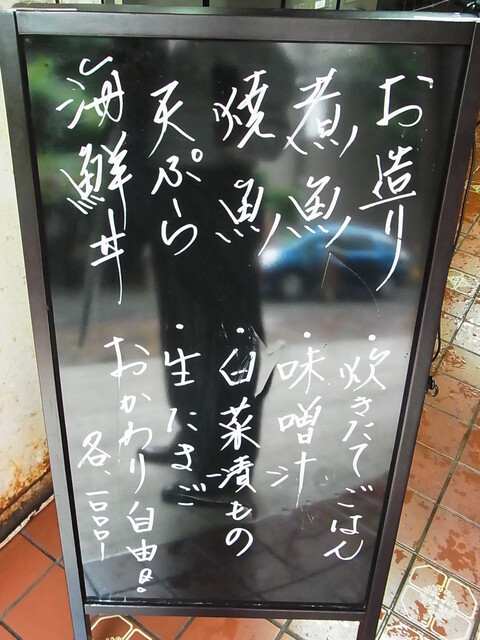 お造り
煮魚
焼魚
天ぷら
海鮮丼
・炊きたてごはん
・味噌汁
・白菜漬もの
・生たまご
おかわり自由。
各、一〇〇〇ー